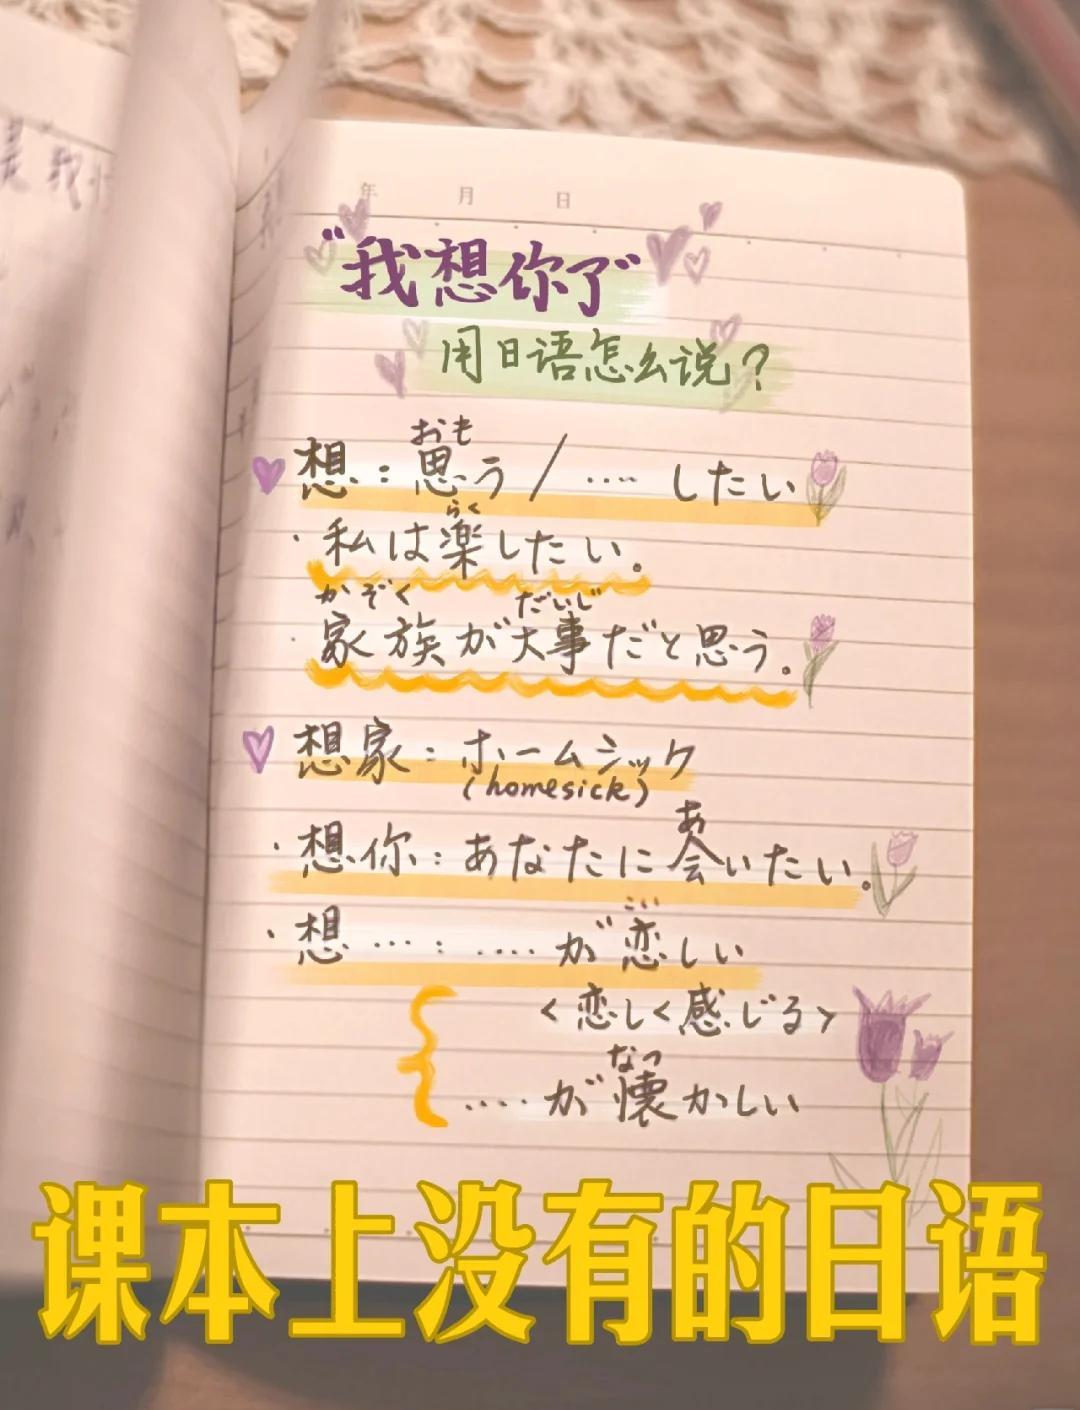 年 月 日
"我想你了"
用日语怎么说？
おも
想：思う / ‥‥ したい
らく
・私は楽したい。
かぞく だいじ
・家族が大事だと思う。
想家：ホームシック
(homesick)
あ
・想你：あなたに会いたい。
こい
・想…：‥‥が恋しい
<恋しく感じる>
なつ
‥‥が懐かしい
课本上没有的日语